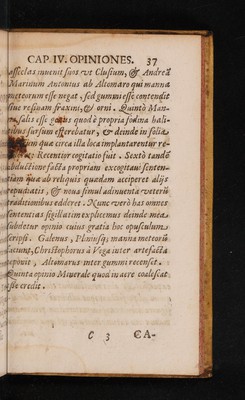 CAP. IV. OPINIONES. 37
assectas inuenit suos vt Clusium, & Andreā
Marinum Antonius ab Altomaro qui manna
meteorum esse negat, sed gummi esse contendit
siue resinam fraxini, & orni. Quintò Man-
salis esse quod è propria fodina hali-
tibus sursum esserebatur, & deinde in folia
quæ circa illa loca implantarentur re-
Recentior cogitatio suit. Sextò tandē
abductione facta propriam excogitaui senten-
tiam quæ ab reliquis quadam acciperet alijs
repudiatis, & noua simul adinuenta veterū
traditionibus edderet. Nunc verò has omnes
sententias sigillatim explicemus deinde mea
subdetur opinio cuius gratia hoc opusculum
scripsi. Galenus, Pliniusq; manna meteoriū
faciunt, Christophorus à Vega inter artefacta
reponit, Altomarus inter gummi recenset.
Quinta opinio Minerale quod in aere coalescat
esse credit.
C 3 CA-